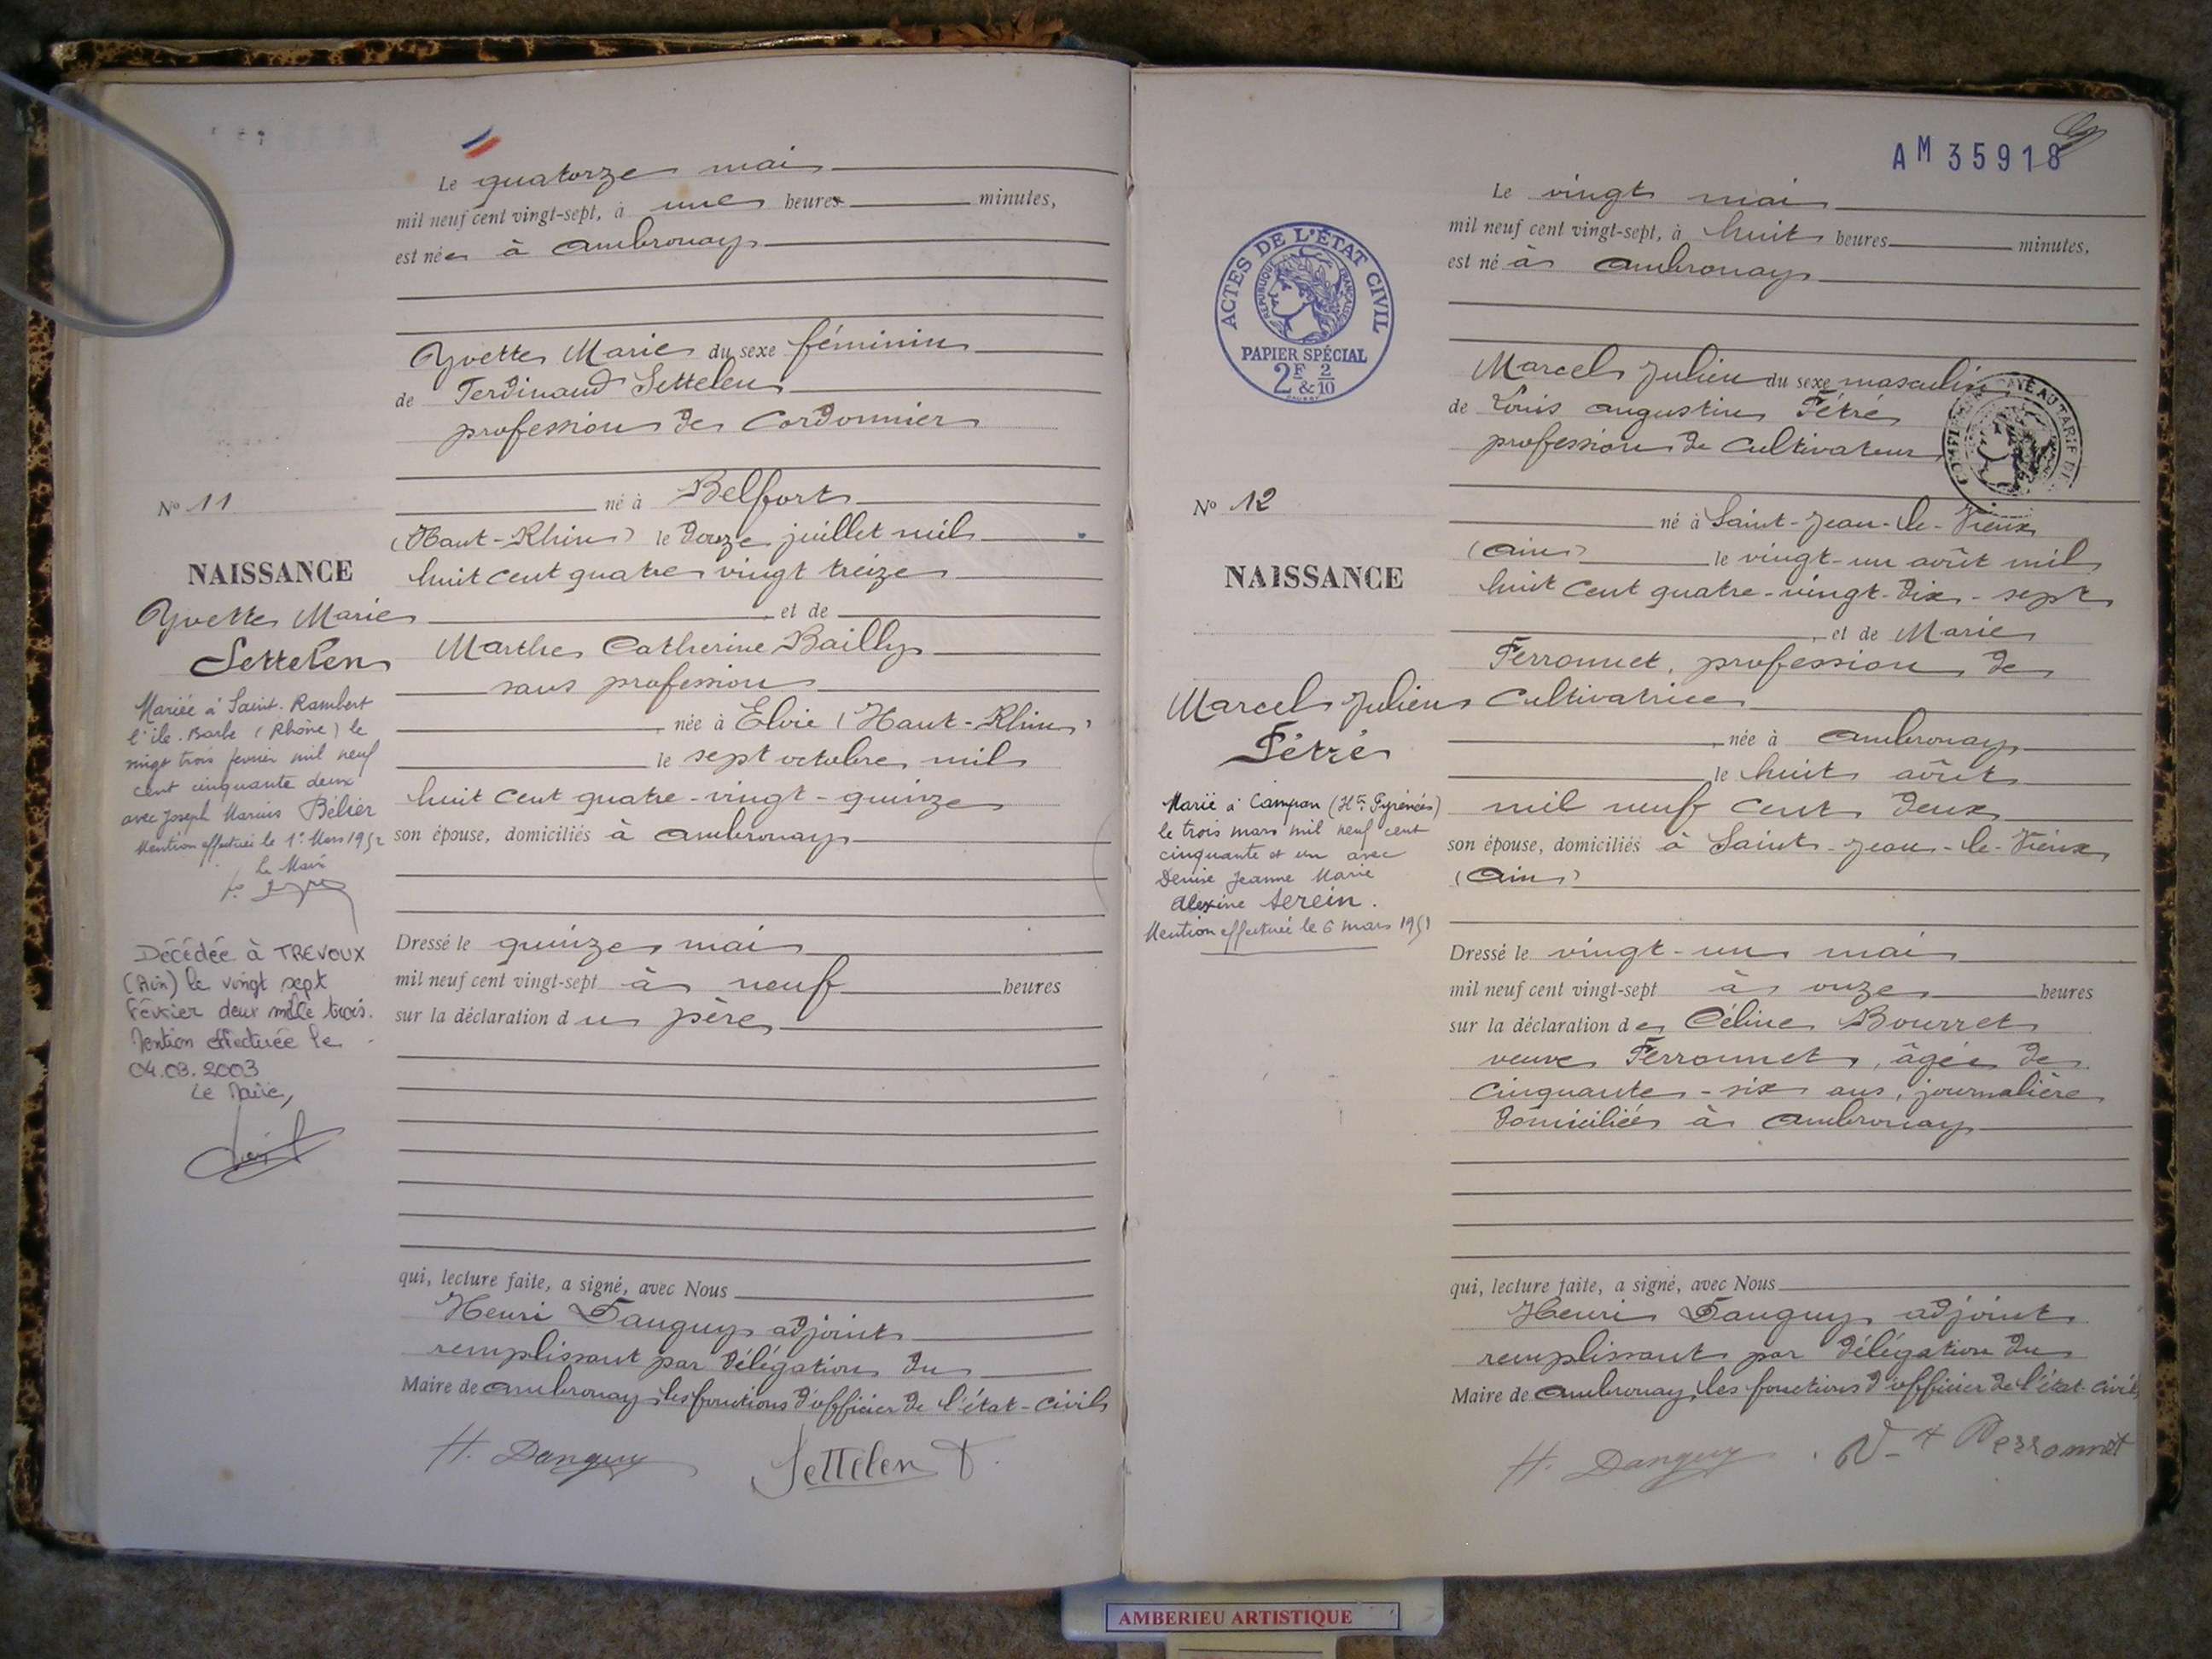 Le quatorze mai
mil neuf cent vingt-sept, à une heure minutes,
est née à Ambronay
Yvette Marie du sexe féminin
de Ferdinand Settelen
profession de Cordonnier
né à Belfort
(Haut-Rhin) le douze juillet mil
huit cent quatre vingt treize
et de
Marthe Catherine Bailly
sans profession
née à Eloie (Haut-Rhin)
le sept octobre mil
huit cent quatre-vingt-quinze
son épouse, domiciliés à Ambronay
Dressé le quinze mai
mil neuf cent vingt-sept à neuf heures
sur la déclaration du père
qui, lecture faite, a signé, avec Nous
Henri Danguy adjoint
remplissant par délégation du
Maire de Ambronay les fonctions d'officier de l'état-civil
H. Danguy Settelen F.
No 11
NAISSANCE
Yvette Marie
Settelen
Mariée à Saint-Rambert
l'île-Barbe (Rhône) le
vingt trois février mil neuf
cent cinquante deux
avec Joseph Marius Bélier
Mention effectuée le 1er Mars 1952
Le Maire
Décédée à TREVOUX
(Ain) le vingt sept
Février deux mille trois.
Mention effectuée le
04.03.2003
Le Maire,
AM 35918
Le vingt mai
mil neuf cent vingt-sept, à huit heures minutes,
est né à Ambronay
Marcel Julien du sexe masculin
de Louis Augustin Fétré
profession de Cultivateur
né à Saint-Jean-le-Vieux
(Ain) le vingt-un août mil
huit cent quatre-vingt-dix-sept
et de Marie
Perronnet, profession de
Cultivatrice
née à Ambronay
le huit août
mil neuf cent deux
son épouse, domiciliés à Saint-Jean-le-Vieux
(Ain)
Dressé le vingt-un mai
mil neuf cent vingt-sept à onze heures
sur la déclaration de Céline Bourret
veuve Perronnet, âgée de
Cinquante-six ans, journalière
domiciliée à Ambronay
qui, lecture faite, a signé, avec Nous
Henri Danguy adjoint
remplissant par délégation du
Maire de Ambronay, les fonctions d'officier de l'état-civil
H. Danguy Vve Perronnet
ACTES DE L'ÉTAT CIVIL
RÉPUBLIQUE FRANÇAISE
PAPIER SPÉCIAL
2F & 2/10
No 12
NAISSANCE
Marcel Julien
Fétré
Marié à Campan (Htes Pyrénées)
le trois mars mil neuf cent
cinquante et un avec
Denise Jeanne Marie
Alexine Serein.
Mention effectuée le 6 mars 1951
AMBERIEU ARTISTIQUE